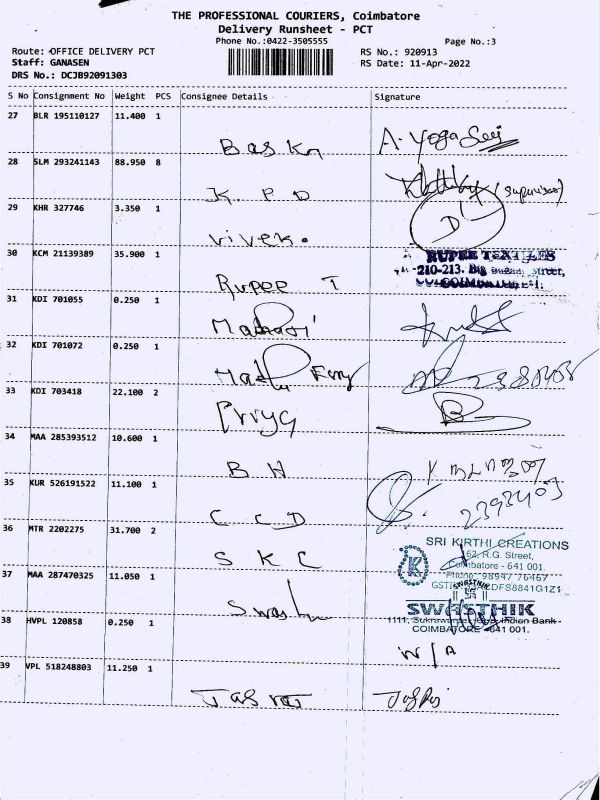 THE PROFESSIONAL COURIERS, Coimbatore
Delivery Runsheet - PCT
Phone No.:0422-3505555
Page No.:3
Route: OFFICE DELIVERY PCT
RS No.: 920913
Staff: GANASEN
RS Date: 11-Apr-2022
DRS No.: DCJB92091303
S No Consignment No Weight PCS Consignee Details Signature
27 BLR 195110127 11.400 1
Baskn A. Yoga
28 SLM 293241143 88.950 8
K. P D (Supervisor)
29 KHR 327746 3.350 1
Vivek. D
30 KCM 21139389 35.900 1
RUPEE TEXTILES
210-213. Big Bazaar Street,
COIMBATORE-1.
Rupee T
31 KDI 701055 0.250 1
32 KDI 701072 0.250 1
33 KDI 703418 22.100 2
Priya B
34 MAA 285393512 10.600 1
B H
35 KUR 526191522 11.100 1
C C D
36 MTR 2202275 31.700 2
SRI KIRTHI CREATIONS
162, R.G. Street,
Coimbatore - 641 001.
Phone: 98947 76467
S K C
37 MAA 287470325 11.050 1
SWASTHIK
SWASTHIK
Indian Bank -
COIMBATORE - 641 001.
38 HVPL 120858 0.250 1
N/A
39 VPL 518248803 11.250 1